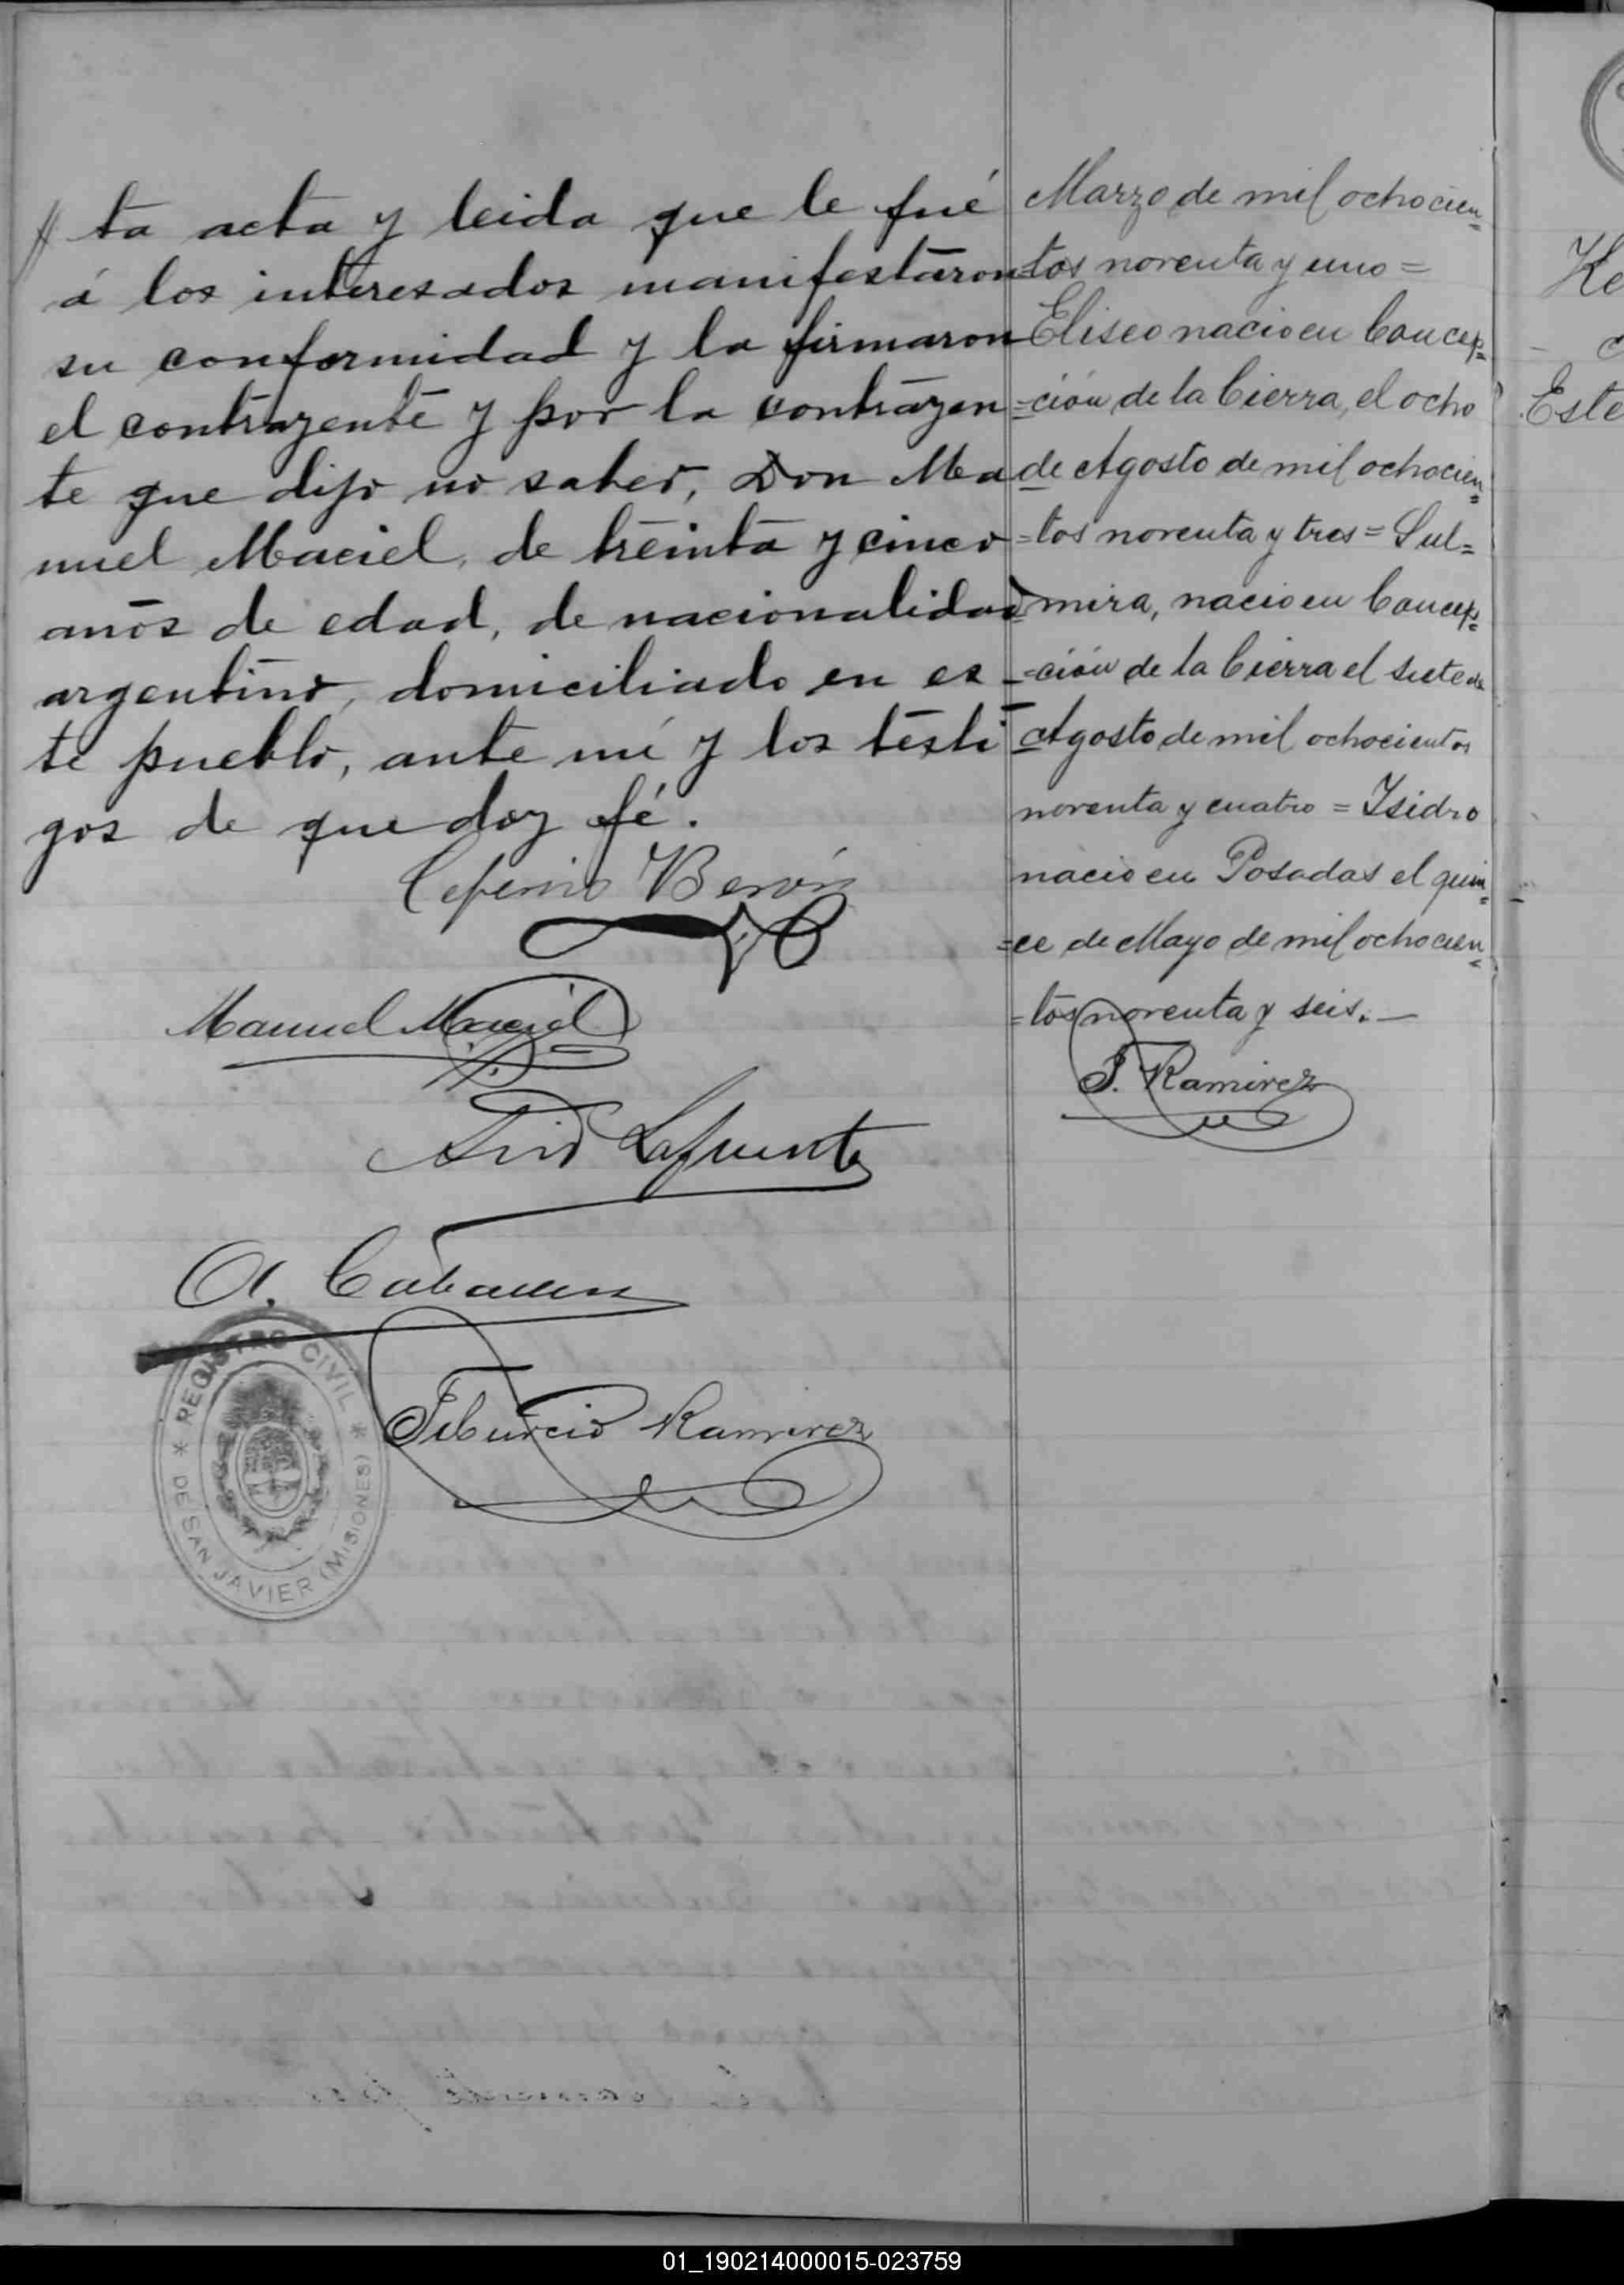 // ta acta y leida que le fué
á los interesados manifestaron
su conformidad y la firmaron
el contrayente y por la contrayen
te que dijo no saber, Don Ma
nuel Maciel, de treinta y cinco
años de edad, de nacionalidad
argentino, domiciliado en es
te pueblo, ante mi y los testi
gos de que doy fé.
Ceferino
Manuel Maciel
Lafuente
A. Caballero
Tiburcio Ramirez
REGISTRO CIVIL
DE SAN JAVIER (MISIONES)
Marzo de mil ochocien=
=tos noventa y uno=
Eliseo nacio en Concep=
=ción de la Cierra, el ocho
de Agosto de mil ochocien=
=tos noventa y tres= Sul=
mira, nacio en Concep=
=ción de la Cierra el siete de
Agosto de mil ochocientos
noventa y cuatro = Isidro
nacio en Posadas el quin=
=ce de Mayo de mil ochocien=
=tos noventa y seis.—
T. Ramirez
Este
01_190214000015-023759